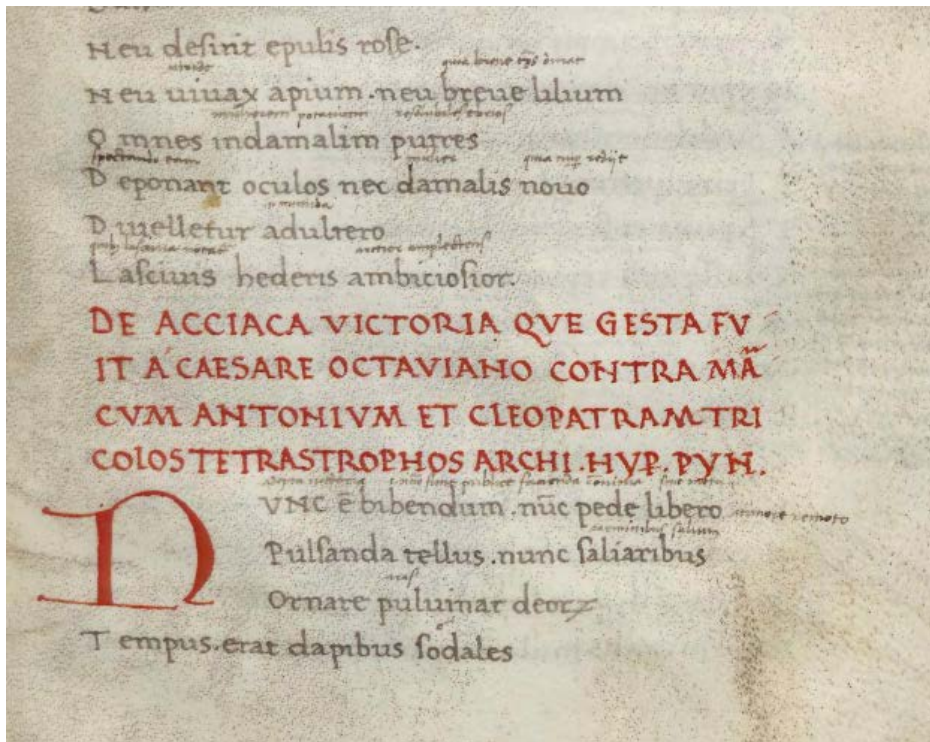 Neu desint epulis rose.
Neu uiuax apium .neu breue lilium
Omnes indamalim putres
spectando eam mulier
Deponant oculos nec damalis nouo
Diuelletur adultero
Lasciuis hederis ambiciosior.
DE ACCIACA VICTORIA QVE GESTA FV
IT A CAESARE OCTAVIANO CONTRA MÃ
CVM ANTONIVM ET CLEOPATRAM TRI
COLOS TETRASTROPHOS ARCHI.HYP.PYN.
DVNC ē bibendum .nūc pede libero timore remoto
carminibus salium
Pulsanda tellus .nunc saliaribus
Ornare puluinar deorꝝ
o
Tempus.erat dapibus sodales